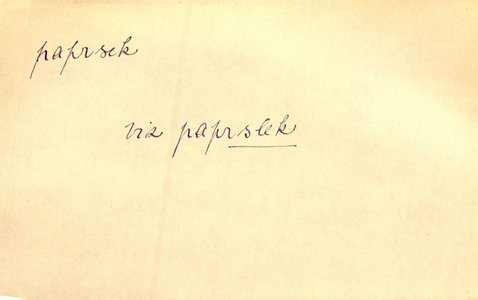 paprsek
viz paprslek